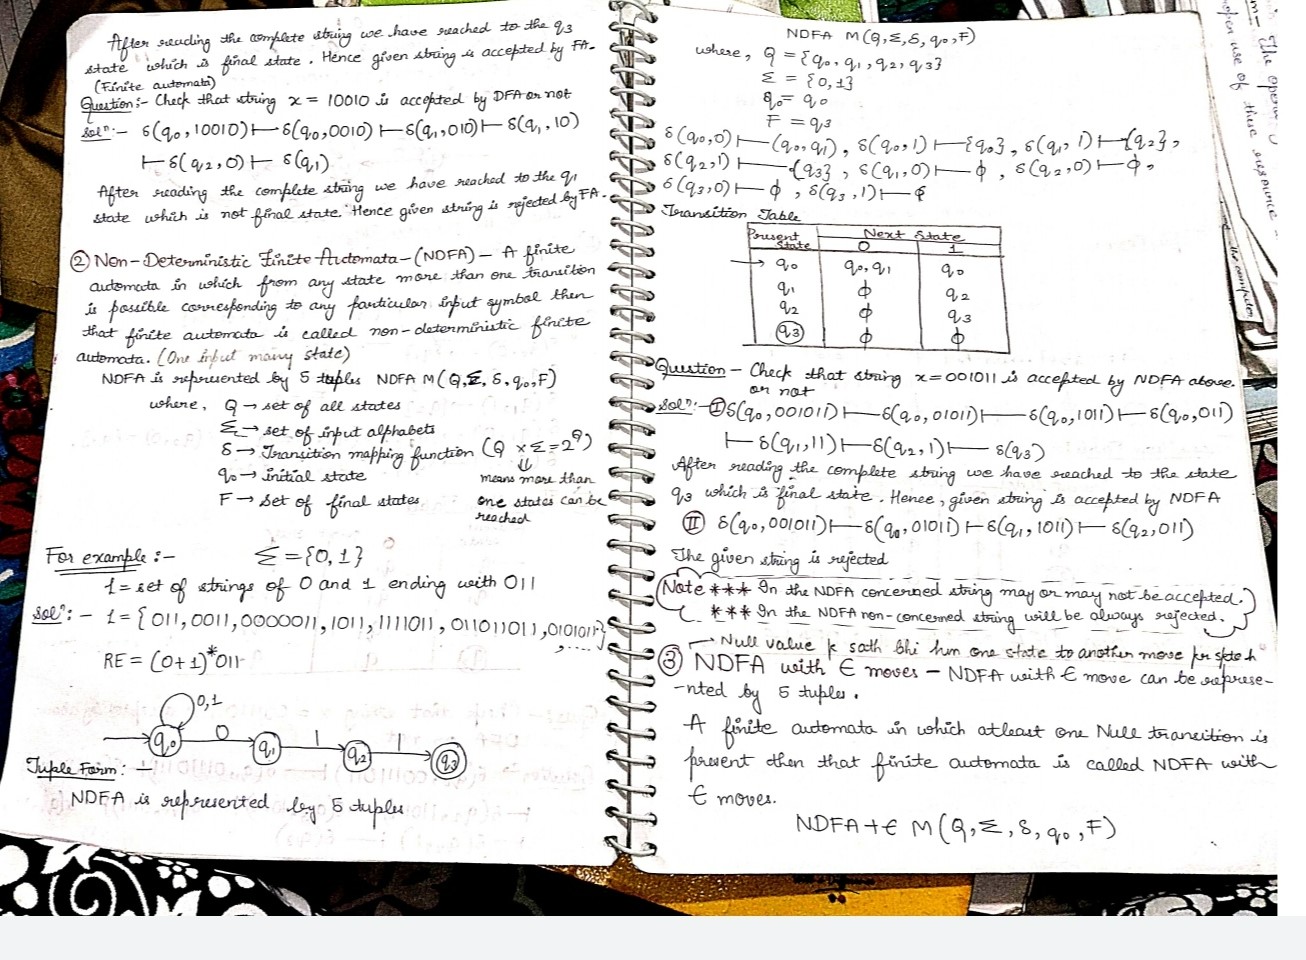 After reading the complete string we have reached to the q3
state which is final state. Hence given string is accepted by FA-
(Finite automata)
Question:- Check that string x = 10010 is accepted by DFA or not
Solⁿ:- δ(q0,10010)⊢δ(q0,0010)⊢δ(q1,010)⊢δ(q1,10)
⊢δ(q2,0)⊢ δ(q1)
After reading the complete string we have reached to the q1
state which is not final state. Hence given string is rejected by FA.
② Non-Deterministic Finite Automata-(NDFA) - A finite
automata in which from any state more than one transition
is possible corresponding to any particular input symbol then
that finite automata is called non-deterministic finite
automata. (One input many state)
NDFA is represented by 5 tuples NDFA M(Q,Σ,δ,q0,F)
where, Q → set of all states
Σ → set of input alphabets
δ → Transition mapping function (Q × Σ = 2^Q)
q0 → initial state
⇓
means more than
one states can be
reached
F → set of final states
For example :- Σ = {0,1}
1 = set of strings of 0 and 1 ending with 011
Solⁿ:- 1 = {011,0011,0000011,1011,1111011,011011011,0101011
,....}
RE = (0+1)*011
0,1
q0 0 q1 1 q2 1 q3
Tuple Form: -
NDFA is represented by 5 tuples
NDFA M(Q,Σ,δ,q0,F)
where, Q = {q0,q1,q2,q3}
Σ = {0,1}
q0 = q0
F = q3
δ(q0,0)⊢(q0,q1), δ(q0,1)⊢{q0}, δ(q1,1)⊢{q2},
δ(q2,1)⊢{q3}, δ(q1,0)⊢ϕ, δ(q2,0)⊢ϕ,
δ(q3,0)⊢ϕ, δ(q3,1)⊢ϕ
Transition Table
Present State Next State
0 1
→ q0 q0,q1 q0
q1 ϕ q2
q2 ϕ q3
q3 ϕ ϕ
Question - Check that string x=001011 is accepted by NDFA above
or not
Solⁿ:- Ⓘ δ(q0,001011)⊢δ(q0,01011)⊢δ(q0,1011)⊢δ(q0,011)
⊢δ(q1,11)⊢δ(q2,1)⊢ δ(q3)
After reading the complete string we have reached to the state
q3 which is final state. Hence, given string is accepted by NDFA
Ⅱ δ(q0,001011)⊢δ(q0,01011)⊢δ(q1,1011)⊢δ(q2,011)
The given string is rejected
Note *** In the NDFA concerned string may or may not be accepted.
*** In the NDFA non-concerned string will be always rejected.
→ Null value k sath bhi hum one state to another move kr skte h
③ NDFA with ∈ moves - NDFA with ∈ move can be represe-
-nted by 5 tuples.
A finite automata in which atleast one Null transition is
present then that finite automata is called NDFA with
∈ moves.
NDFA+∈ M(Q,Σ,δ,q0,F)